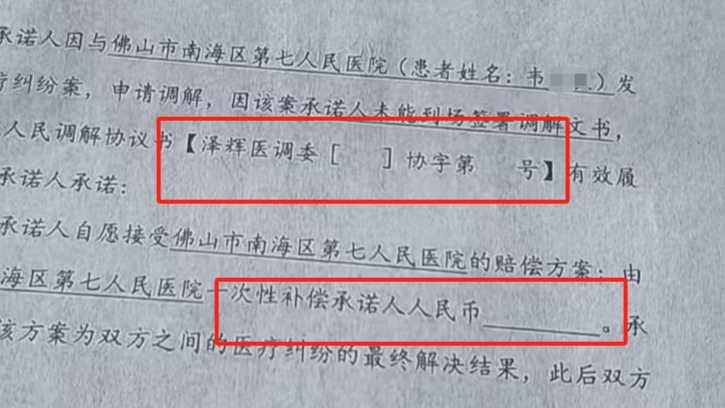 承诺人因与佛山市南海区第七人民医院（患者姓名：韦　　）发
疗纠纷案，申请调解，因该案承诺人未能到场签署调解文书，
人民调解协议书【泽辉医调委［　　］协字第　　号】有效履
承诺人承诺：
承诺人自愿接受佛山市南海区第七人民医院的赔偿方案：由
海区第七人民医院一次性补偿承诺人人民币＿＿＿＿＿。承
该方案为双方之间的医疗纠纷的最终解决结果，此后双方